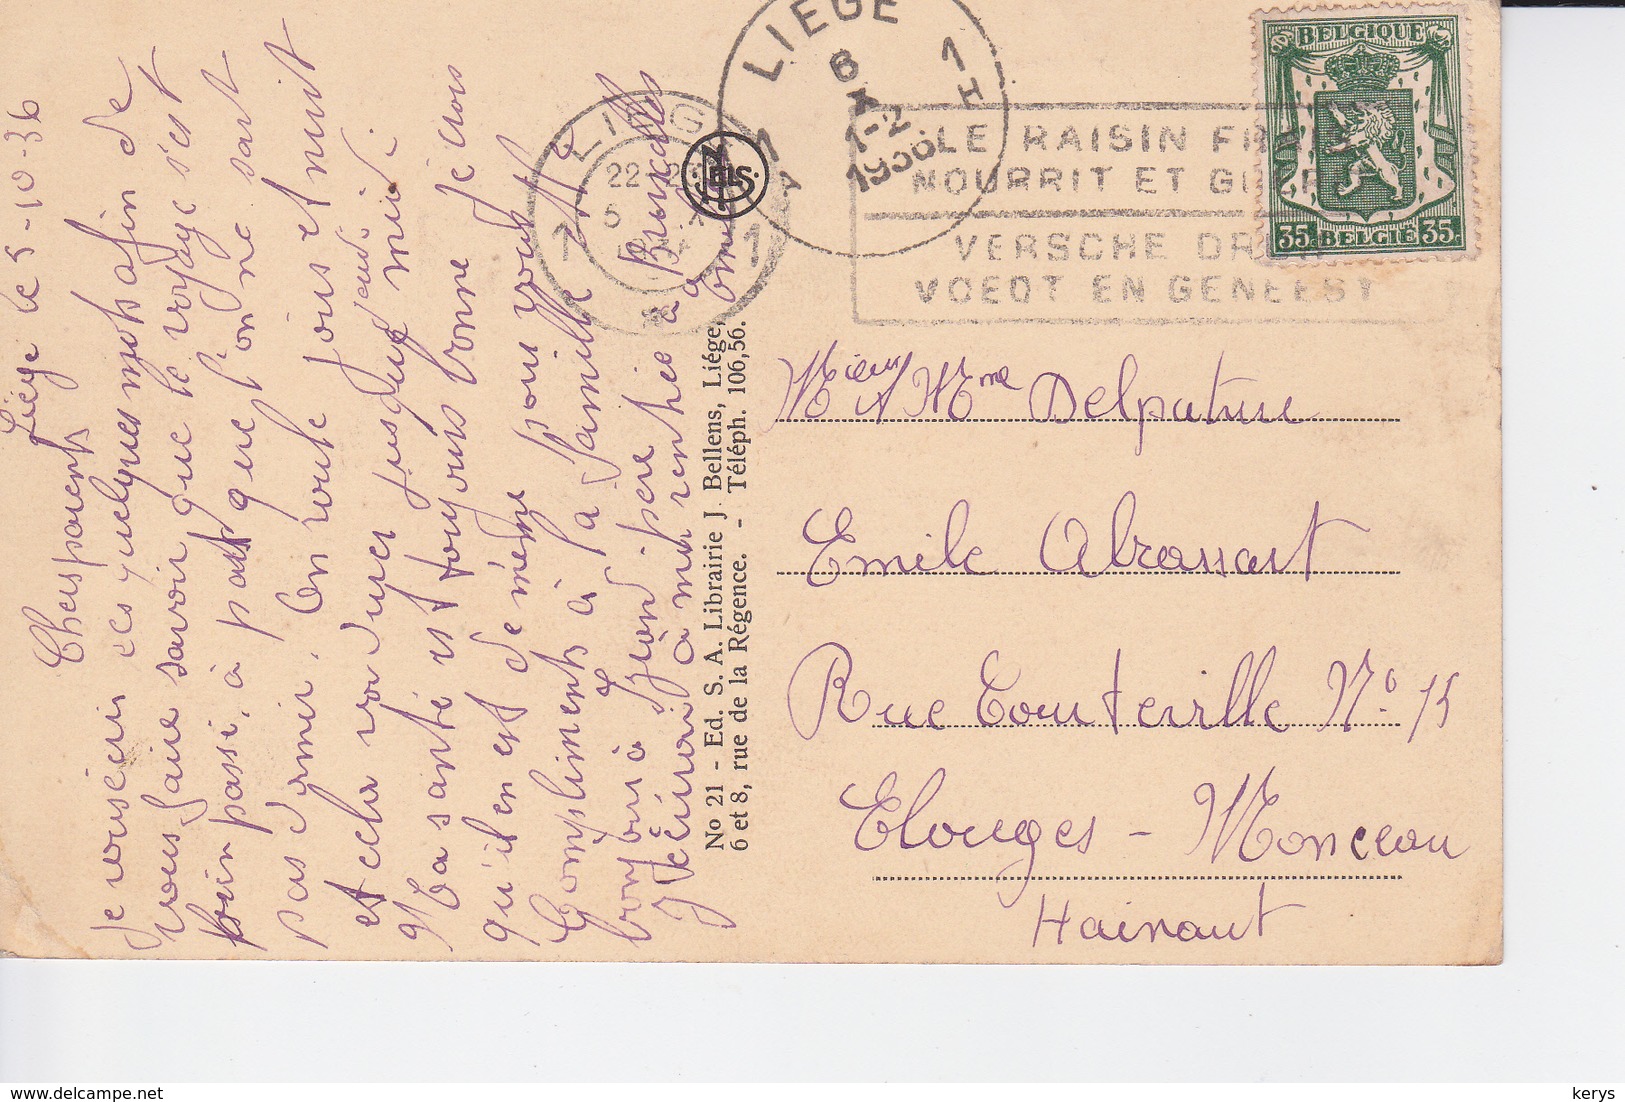 Liège le 5-10-36
Chers parents
Je vous écris ces quelques mots afin de
vous faire savoir que le voyage s'est
bien passé, à part que l'on ne sait
pas dormir. On roule jours et nuit
et cela va durer jusque jeudi midi
La santé est toujours bonne je crois
qu'il en est de même pour vous
Compliments à la famille et
bonjour à grand père
Je écrirai à ma rentrée à Bruxelles
LIEGE
22-23
5 X
1 1
36
NELS
LIEGE
1 1
6
X
1-2
1936
A H
LE RAISIN FRAIS
NOURRIT ET GUERIT
VERSCHE DRUIF
VOEDT EN GENEEST
BELGIQUE
35 BELGIË 35
No 21 - Ed. S. A. Librairie J. Bellens, Liége,
6 et 8, rue de la Régence. - Téléph. 106,56.
Mr et Mme Delpature
Emile Abrassart
Rue Tourteville No 15
Elouges - Monceau
Hainaut
delcampe.net
kerys